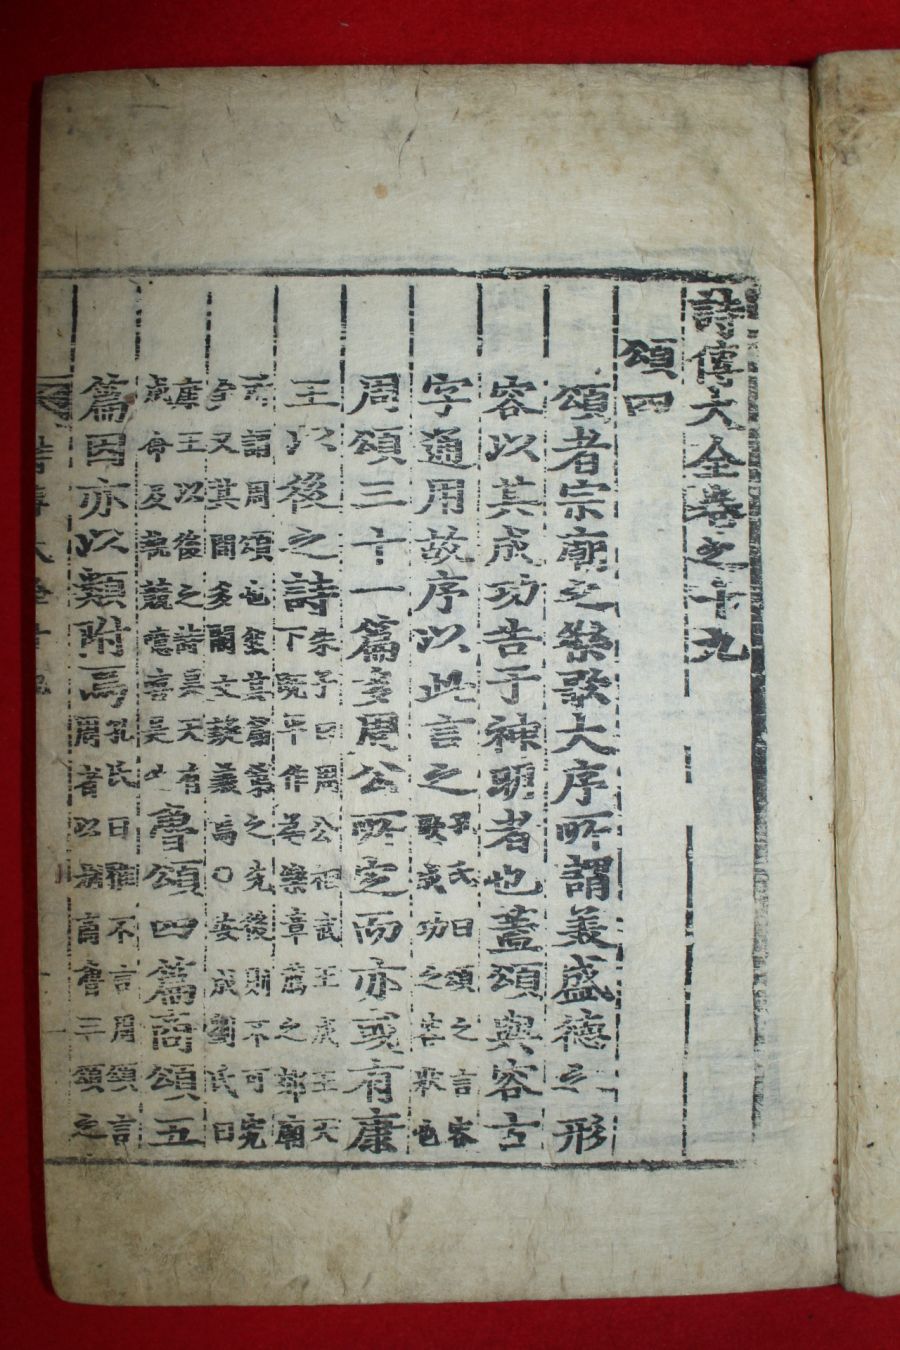 詩傳大全卷之十九
頌四
頌者宗廟之樂歌大序所謂美盛德之形
容以其成功告于神明者也蓋頌與容古
字通用故序以此言之孔氏曰頌之言容歌成功之容狀也
周頌三十一篇多周公所定而亦或有康
王以後之詩朱子曰周公相武王成王天下旣平作爲樂章薦之郊廟
所謂周頌也然其篇第之先後則不可究考又其間多闕文疑義焉○安成劉氏曰
康王以後之詩昊天有成命及執競噫嘻是也魯頌四篇商頌五
篇因亦以類附焉孔氏曰雅不言周頌言周者以別商魯三頌之